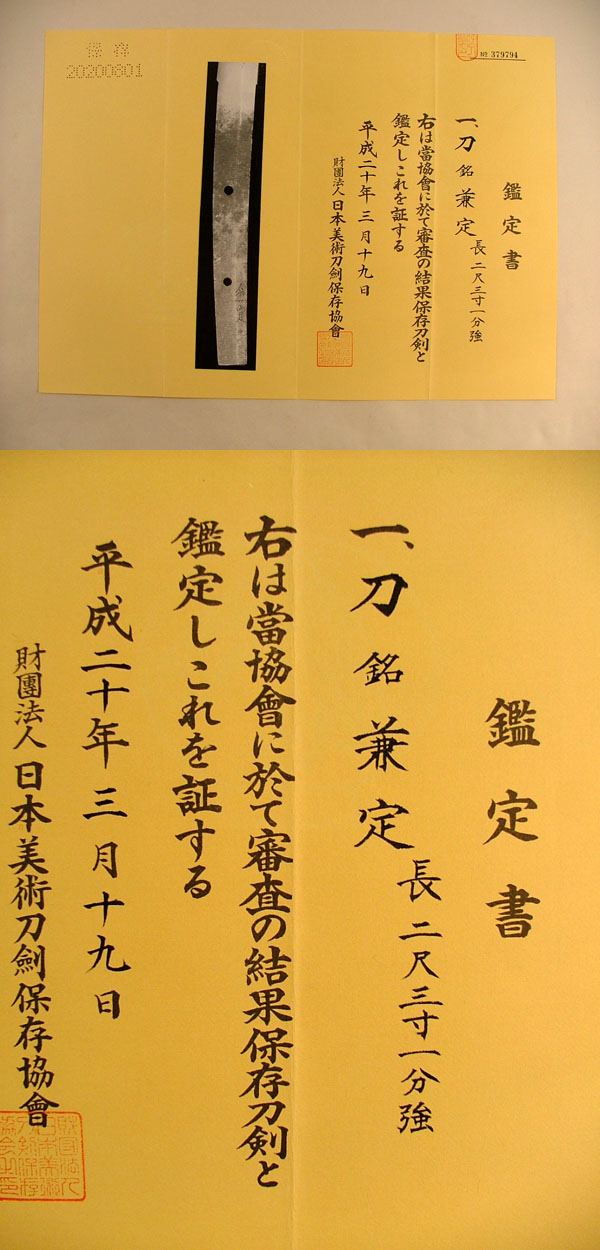 保存
20200801
№ 379794
鑑定書
一、刀 銘 兼定
長 二尺三寸一分強
右は當協會に於て審査の結果保存刀剣と
鑑定しこれを証する
平成二十年三月十九日
財團法人 日本美術刀劍保存協會
鑑定書
一、刀 銘 兼定
長 二尺三寸一分強
右は當協會に於て審査の結果保存刀剣と
鑑定しこれを証する
平成二十年三月十九日
財團法人 日本美術刀劍保存協會